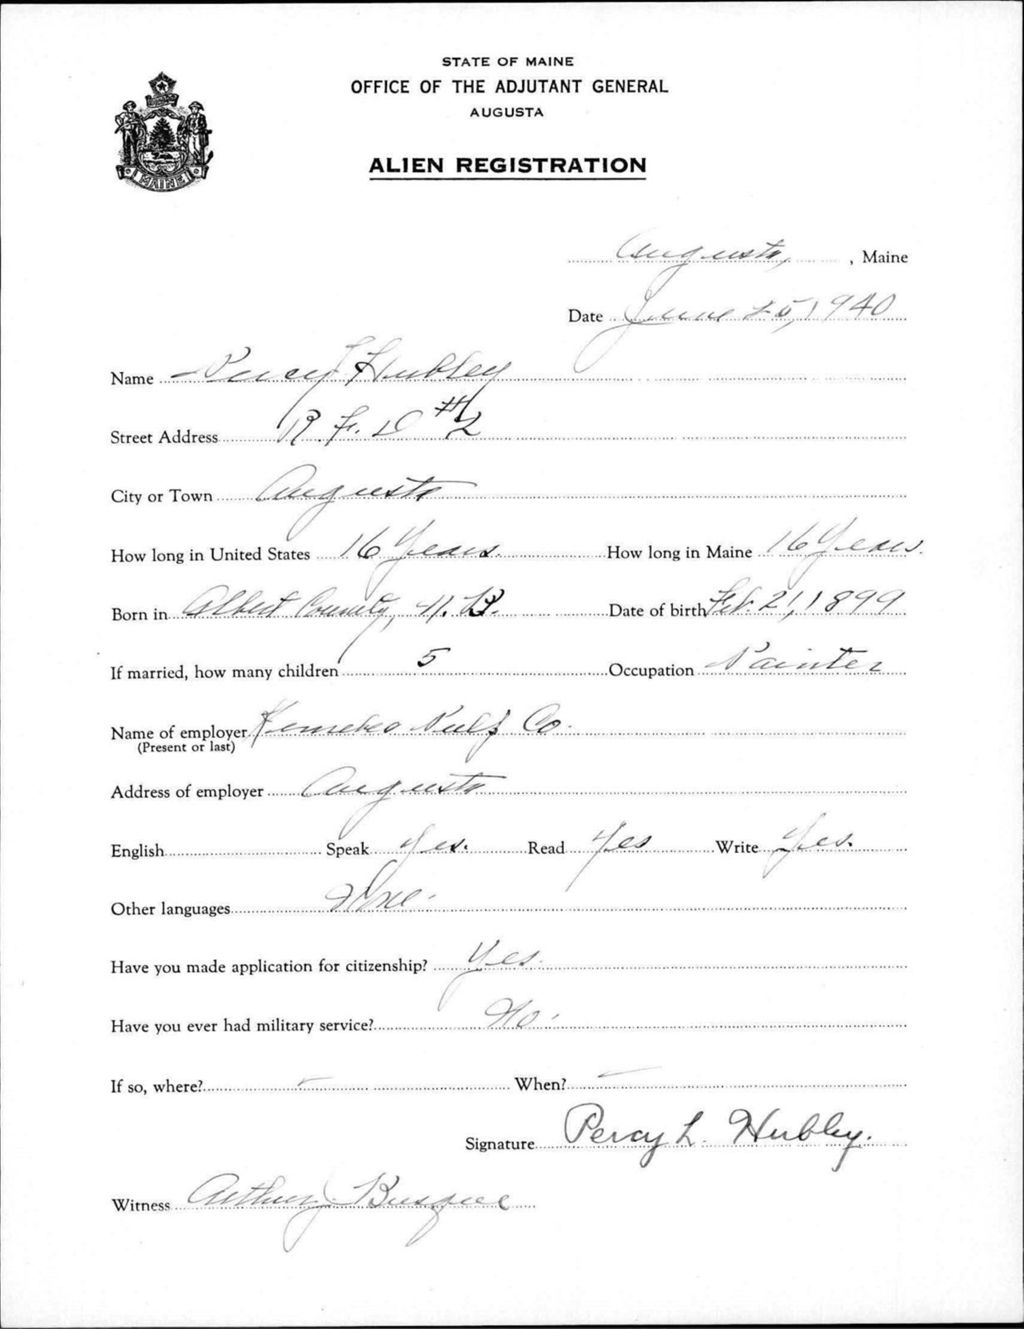 STATE OF MAINE
OFFICE OF THE ADJUTANT GENERAL
AUGUSTA
MAINE
ALIEN REGISTRATION
Augusta, , Maine
Date June 25, 1940
Name Percy L Hubley
Street Address R. F. D #2
City or Town Augusta
How long in United States 16 Years. How long in Maine 16 Years.
Born in Albert County, N. B. Date of birth Feb. 21, 1899
If married, how many children 5 Occupation Painter
Name of employer Kennebec Pulp Co.
(Present or last)
Address of employer Augusta
English Speak Yes. Read Yes Write Yes.
Other languages None.
Have you made application for citizenship? Yes.
Have you ever had military service? No.
If so, where? — When? —
Signature Percy L. Hubley.
Witness Arthur J. Busque